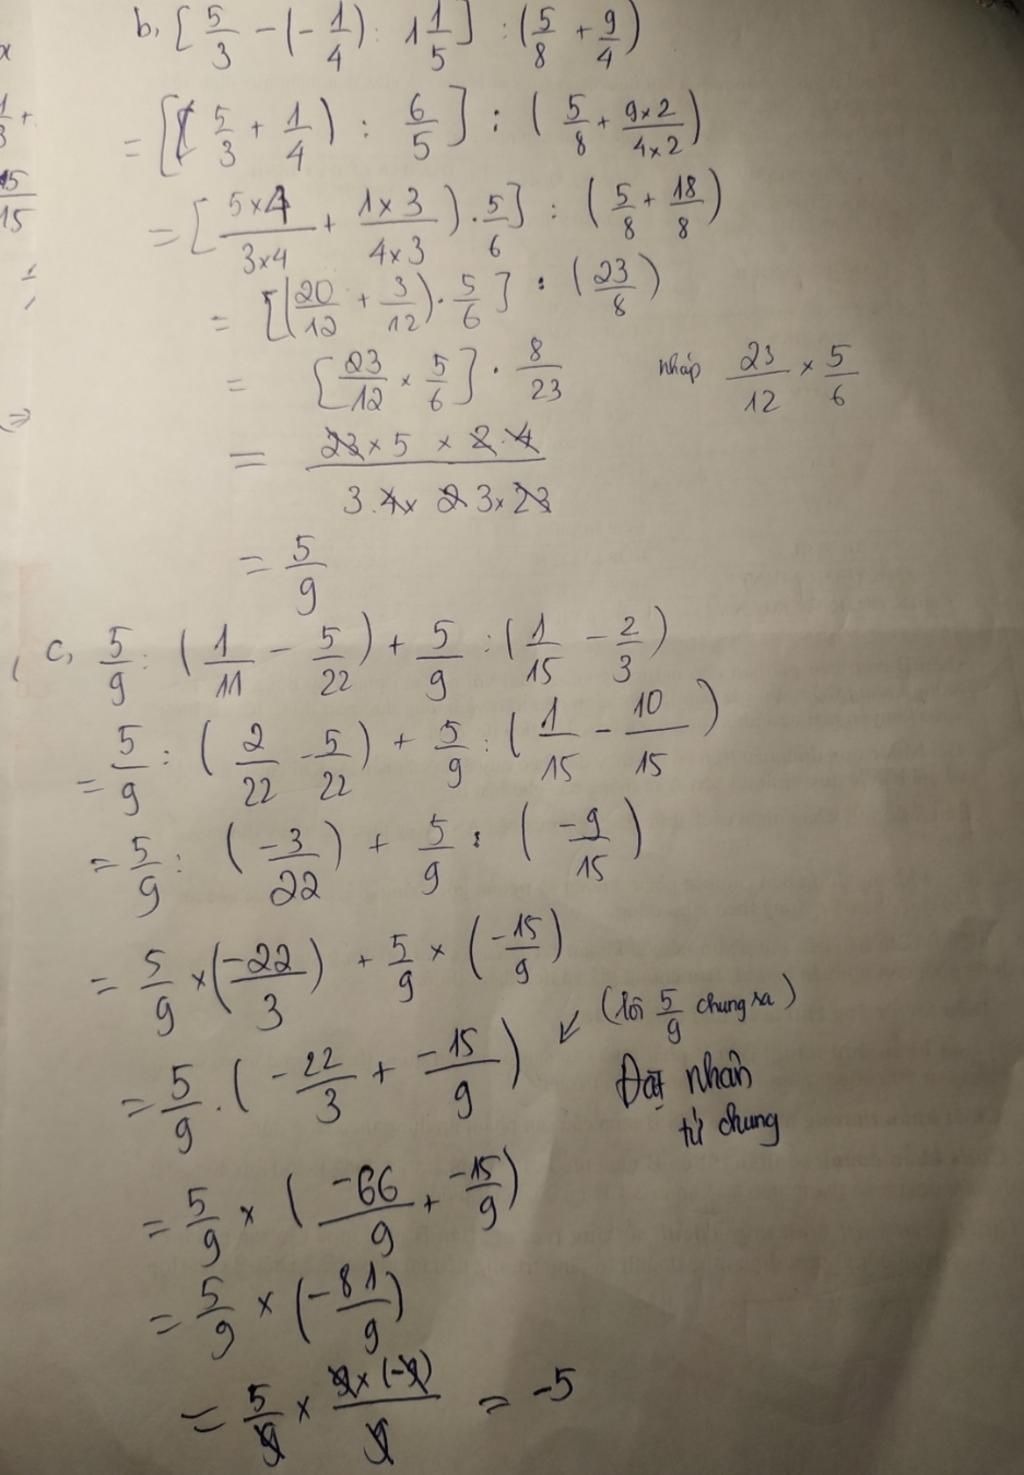 b, [5/3 - (-1/4) : 1 1/5] : (5/8 + 9/4)
= [(5/3 + 1/4) : 6/5] : (5/8 + 9x2/4x2)
= [5x4/3x4 + 1x3/4x3) . 5/6] : (5/8 + 18/8)
= [(20/12 + 3/12) . 5/6] : (23/8)
= [23/12 x 5/6] . 8/23 nháp 23/12 x 5/6
= 23 x 5 x 2.4 / 3.4 x 2 3 x 23
= 5/9
c, 5/9 : (1/11 - 5/22) + 5/9 : (1/15 - 2/3)
= 5/9 : (2/22 - 5/22) + 5/9 : (1/15 - 10/15)
= 5/9 : (-3/22) + 5/9 : (-9/15)
= 5/9 x (-22/3) + 5/9 x (-15/9)
(lôi 5/9 chung ra)
= 5/9 . (-22/3 + -15/9) ↙
Đặt nhân
tử chung
= 5/9 x (-66/9 + -15/9)
= 5/9 x (-81/9)
= 5/9 x 9x(-9)/9 = -5